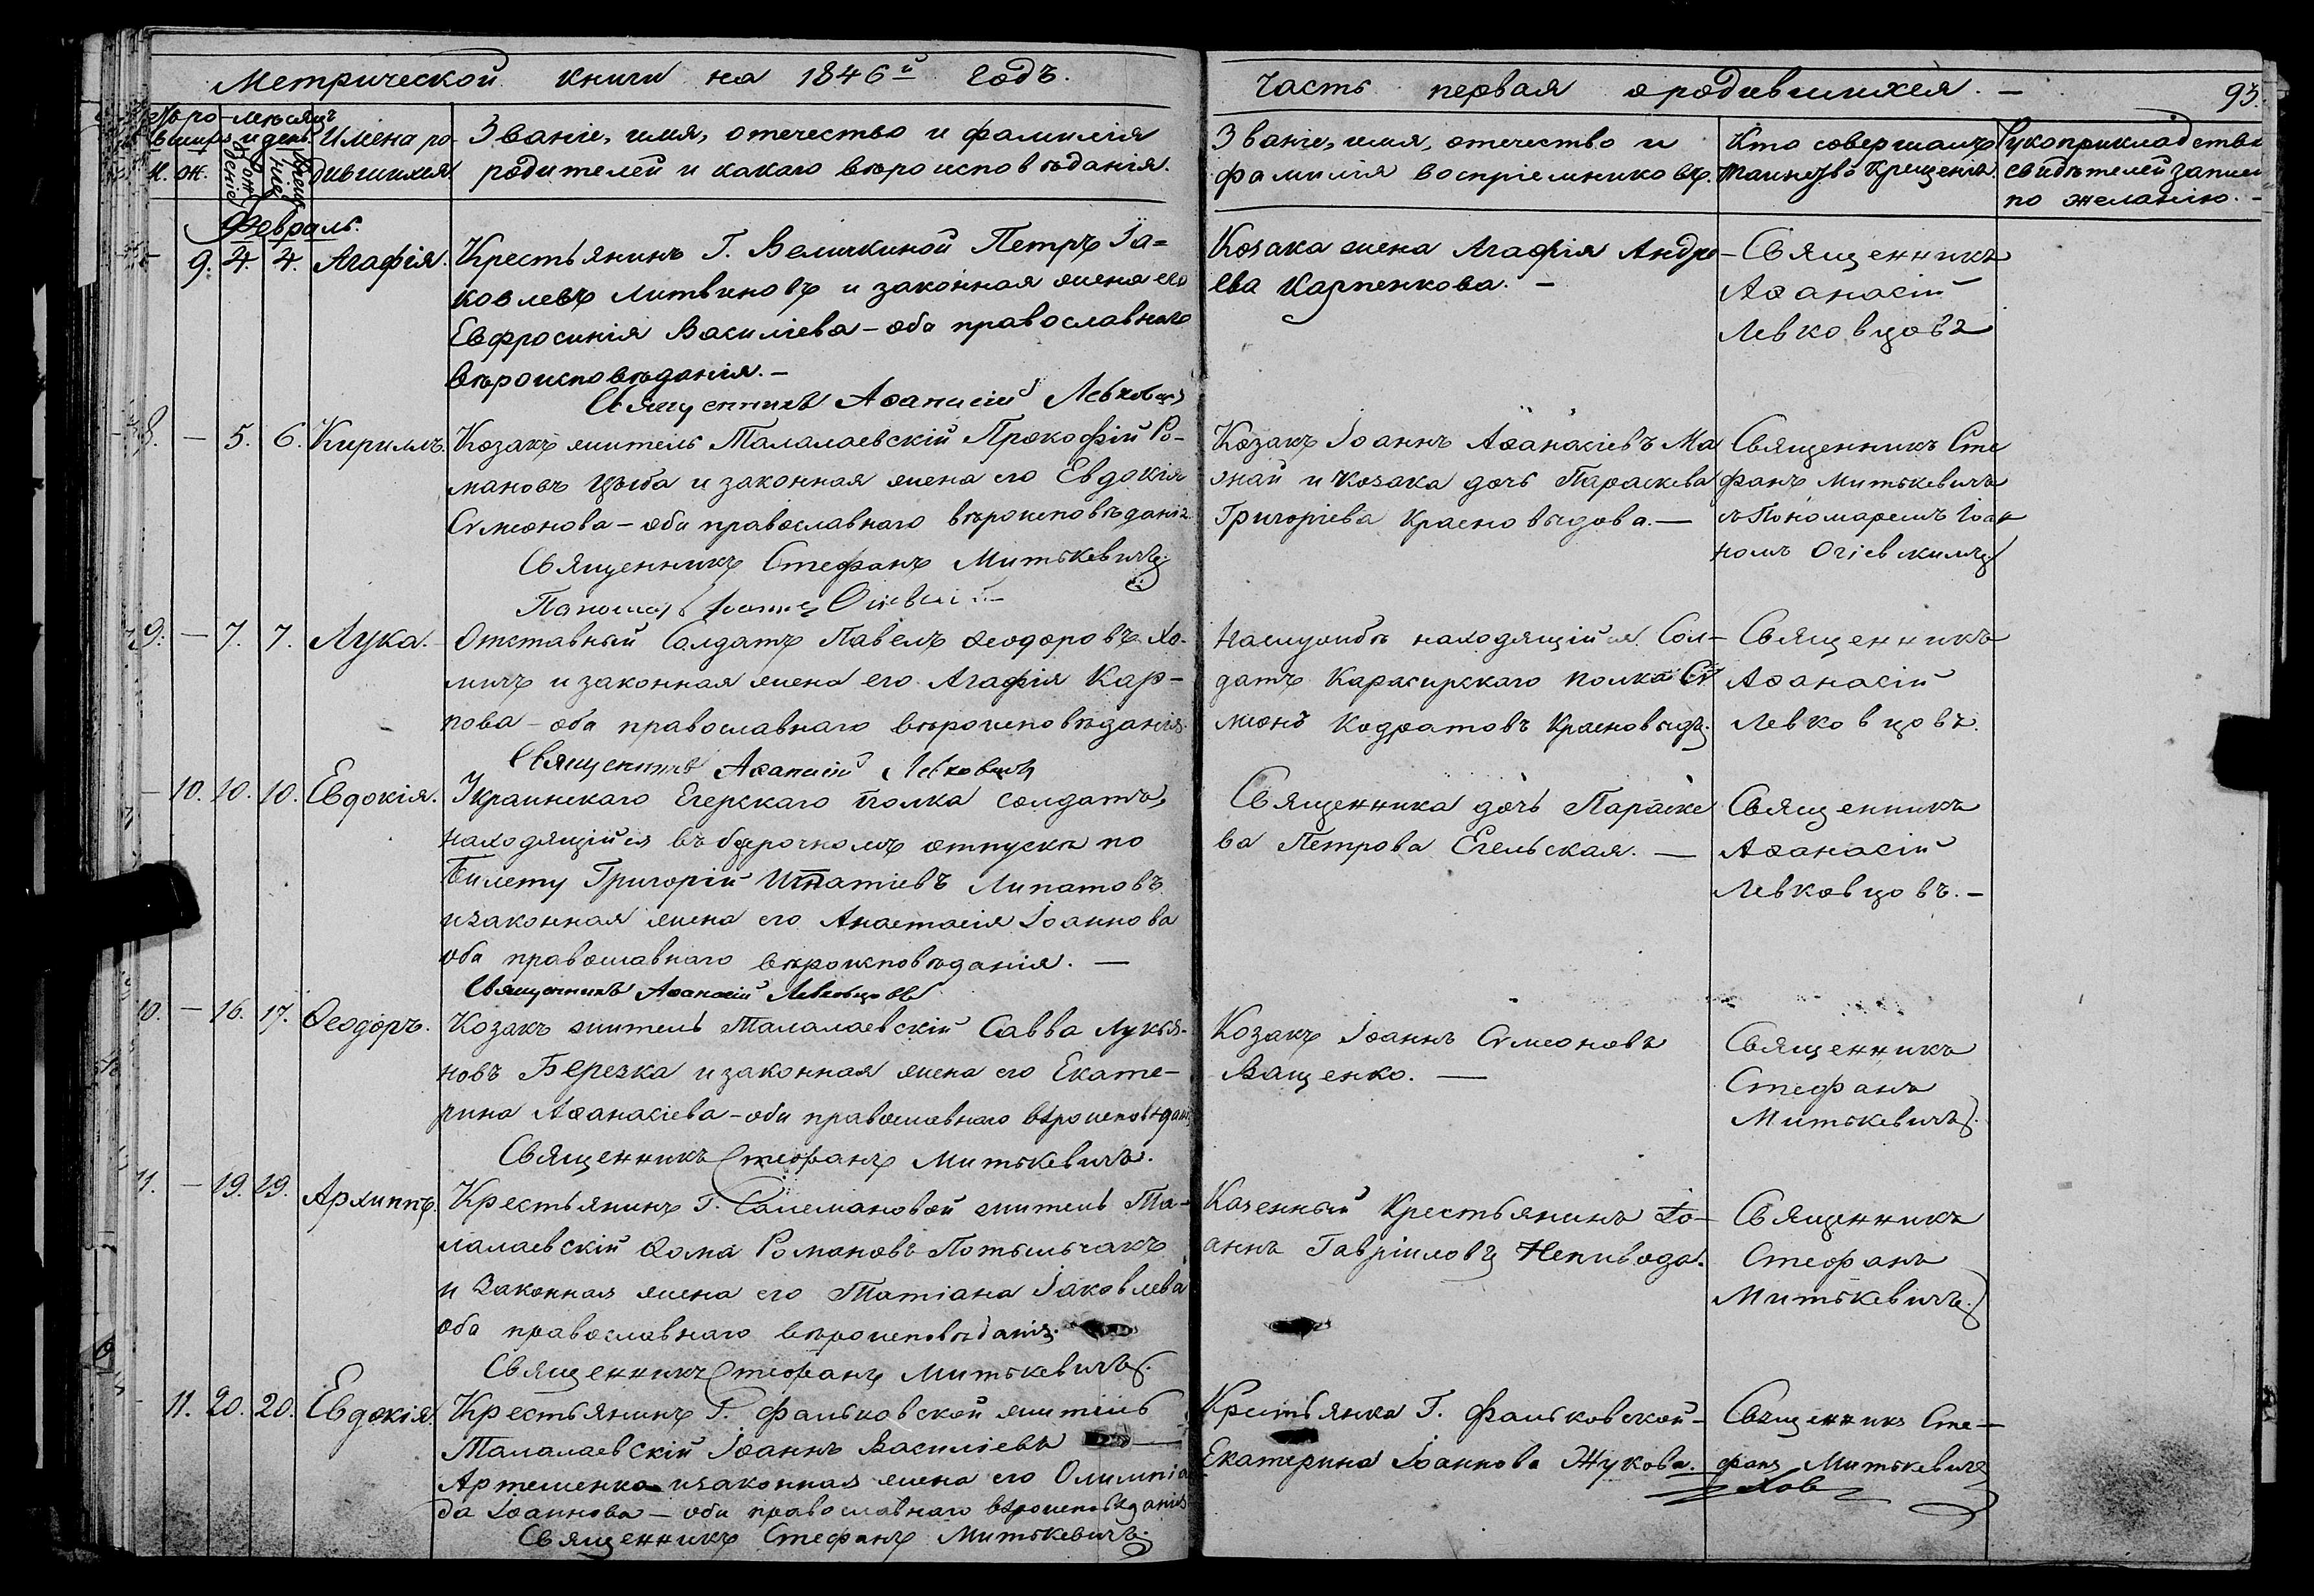 Метрической книги на 1846й годъ.
часть первая о родившихся. — 93.
Имена родившихся
Званіе, имя, отечество и фамилія
родителей и какого вѣроисповѣданія.
Званіе, имя, отечество и
фамилія воспріемниковъ.
Кто совершалъ
таинство крещенія
Рукоприкладство
свидѣтелей записи
по желанію. —
Февраль.
9. 4. 4. Агафія.
Крестьянинъ Г. Величкиной Петръ Іа=
ковлевъ Литвиновъ и законная жена его
Евфросинія Василіева – оба православнаго
вѣроисповѣданія. —
Священникъ Аѳанасій Левковцовъ
Козака жена Агафія Андре-
ева Карпенкова. —
Священникъ
Аѳанасій
Левковцовъ
8. — 5. 6. Кириллъ.
Козакъ житель Талалаевскій Прокофій Ро-
мановъ Цыба и законная жена его Евдокія
Сѵмеонова – оба православнаго вѣроисповѣданія.
Священникъ Стефанъ Митькевичъ
Пономарь Іоаннъ Огіевскій
Козакъ Іоаннъ Аѳанасіевъ Ма
знай и козака дочь Параскева
Григоріева Красновыдова. —
Священникъ Сте
фанъ Митькевичъ
съ Пономаремъ Іоан
номъ Огіевскимъ
9. — 7. 7. Лука.
Отставный Солдатъ Павелъ Ѳеодоровъ Хо-
мичъ и законная жена его Агафія Кар-
пова – оба православнаго вѣроисповѣданія.
Священникъ Аѳанасій Левковцовъ
На службѣ находящійся Сол-
датъ Карасирскаго полка Сѵ
меонъ Кодратовъ Красновыдъ.
Священникъ
Аѳанасій
Левковцовъ.
— 10. 10. 10. Евдокія.
Украинскаго Егерскаго полка солдатъ,
находящійся въ безсрочномъ отпуску по
билету Григорій Игнатіевъ Липатовъ
и законная жена его Анастасія Іоаннова
оба православнаго вѣроисповѣданія. —
Священникъ Аѳанасій Левковцовъ
Священника дочь Параске
ва Петрова Егельская. —
Священникъ
Аѳанасій
Левковцовъ. —
10. — 16. 17. Ѳеодоръ.
Козакъ житель Талалаевскій Савва Лукья-
новъ Березка и законная жена его Екате-
рина Аѳанасіева – оба православнаго вѣроисповѣданія
Священникъ Стефанъ Митькевичъ.
Козакъ Іоаннъ Сѵмеоновъ
Ващенко. —
Священникъ
Стефанъ
Митькевичъ.
11. — 19. 19. Архиппъ.
Крестьянинъ Г. житель Та-
лалаевскій Ѳома Романовъ Потыльчакъ
и законная жена его Татіана Іаковлева
оба православнаго вѣроисповѣданія.
Священникъ Стефанъ Митькевичъ.
Казенный Крестьянинъ Іо-
аннъ Гавріиловъ Непивода.
Священникъ
Стефанъ
Митькевичъ.
— 11. 20. 20. Евдокія.
Крестьянинъ Г. Фальковской житель
Талалаевскій Іоаннъ Василіевъ —
Артеменко и законная жена его Олимпіа
да Іоаннова — оба православнаго вѣроисповѣданія
Священникъ Стефанъ Митькевичъ
Крестьянка Г. Фальковской –
Екатерина Іоаннова Жукова.
Священникъ Сте—
фанъ Митькевичъ